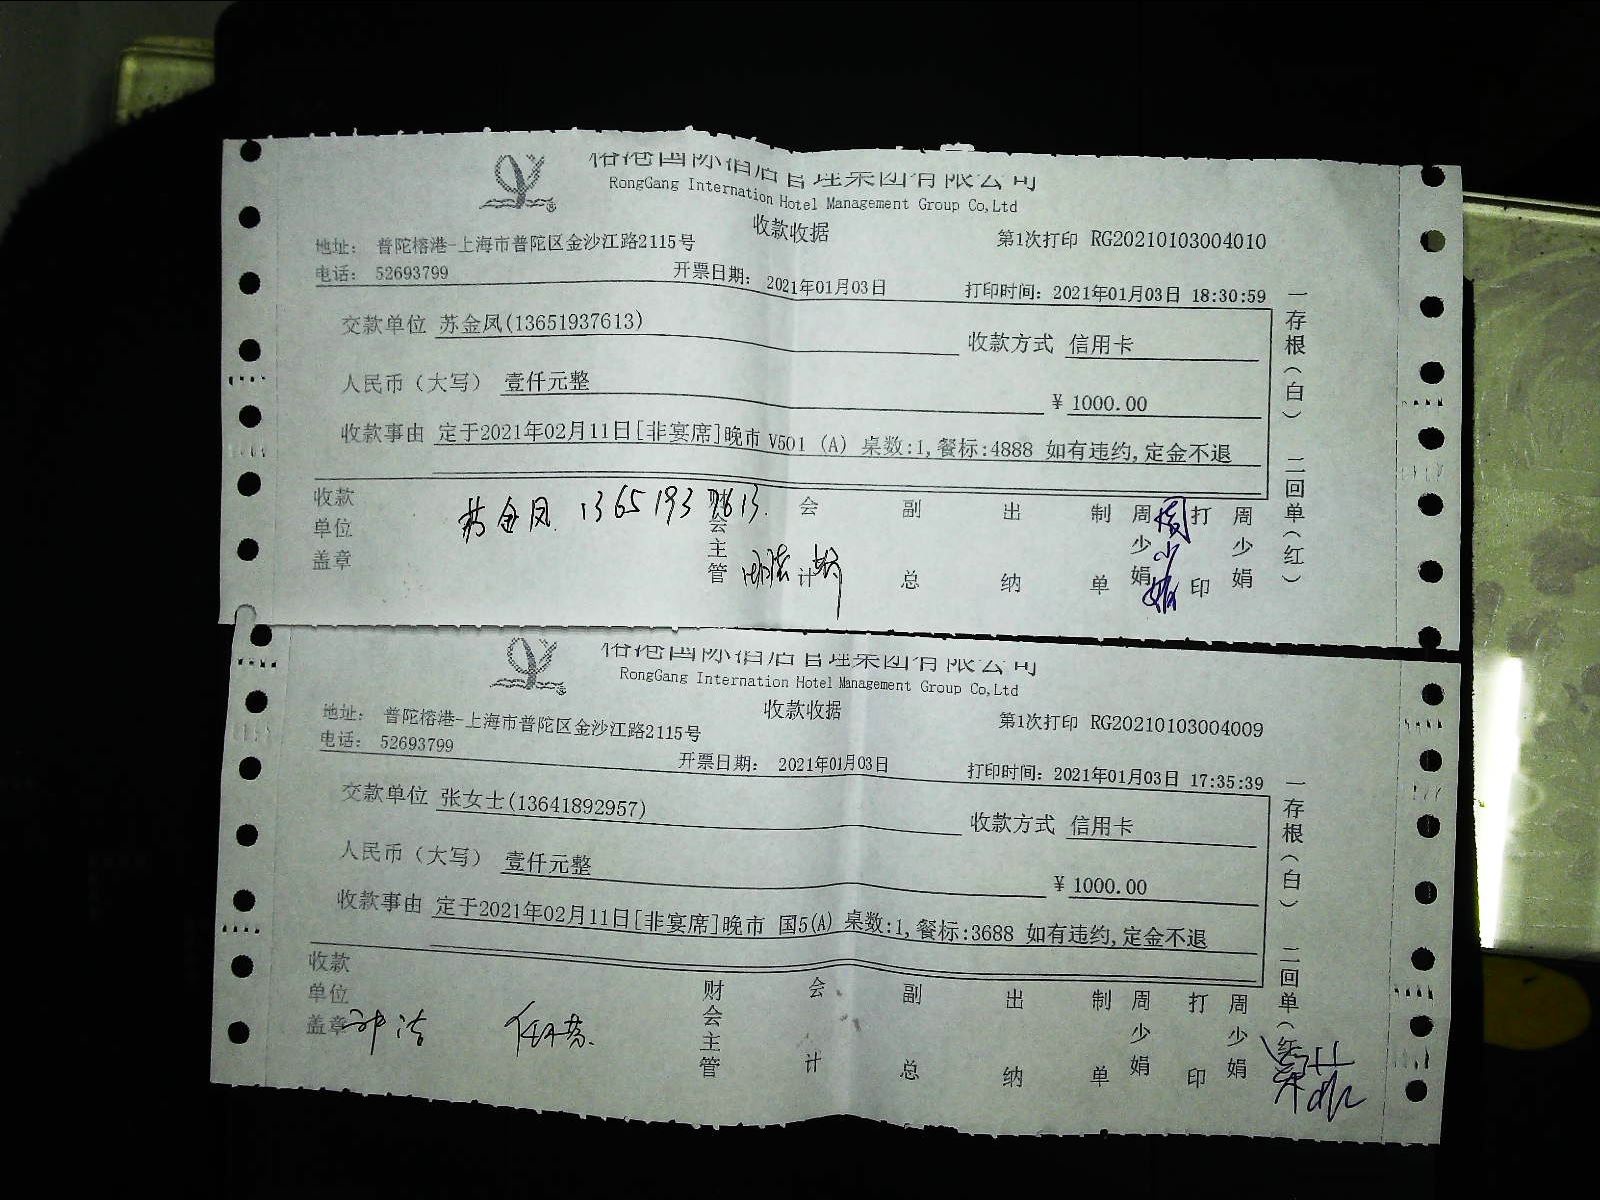 榕港国际酒店管理集团有限公司
RongGang Internation Hotel Management Group Co,Ltd
收款收据
地址: 普陀榕港-上海市普陀区金沙江路2115号
第1次打印 RG20210103004010
电话: 52693799
开票日期: 2021年01月03日
打印时间: 2021年01月03日 18:30:59
交款单位 苏金凤(13651937613)
收款方式 信用卡
人民币(大写) 壹仟元整
¥ 1000.00
收款事由 定于2021年02月11日[非宴席]晚市 V501 (A) 桌数:1,餐标:4888 如有违约,定金不退
一存根(白) 二回单(红)
收款单位盖章
苏金凤 13651937613.
财会主管
会计
副总
出纳
制单
周少娟
周少娟
打印
周少娟
榕港国际酒店管理集团有限公司
RongGang Internation Hotel Management Group Co,Ltd
收款收据
地址: 普陀榕港-上海市普陀区金沙江路2115号
第1次打印 RG20210103004009
电话: 52693799
开票日期: 2021年01月03日
打印时间: 2021年01月03日 17:35:39
交款单位 张女士(13641892957)
收款方式 信用卡
人民币(大写) 壹仟元整
¥ 1000.00
收款事由 定于2021年02月11日[非宴席]晚市 国5(A) 桌数:1,餐标:3688 如有违约,定金不退
一存根(白) 二回单(红
收款单位盖章
财会主管
会计
副总
出纳
制单
周少娟
打印
周少娟